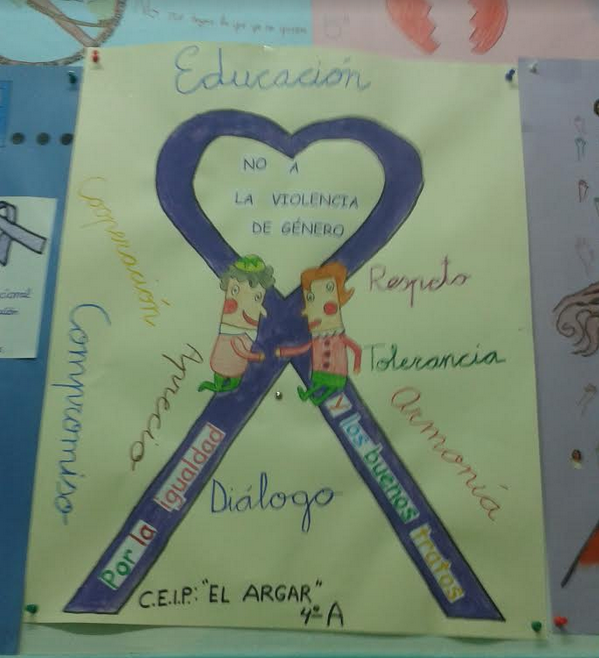 Educación
NO A
LA VIOLENCIA
DE GÉNERO
Cooperación
Respeto
Compromiso
Aprecio
Tolerancia
Armonía
Por la igualdad
y los buenos tratos
Diálogo
C.E.I.P: "EL ARGAR"
4º A